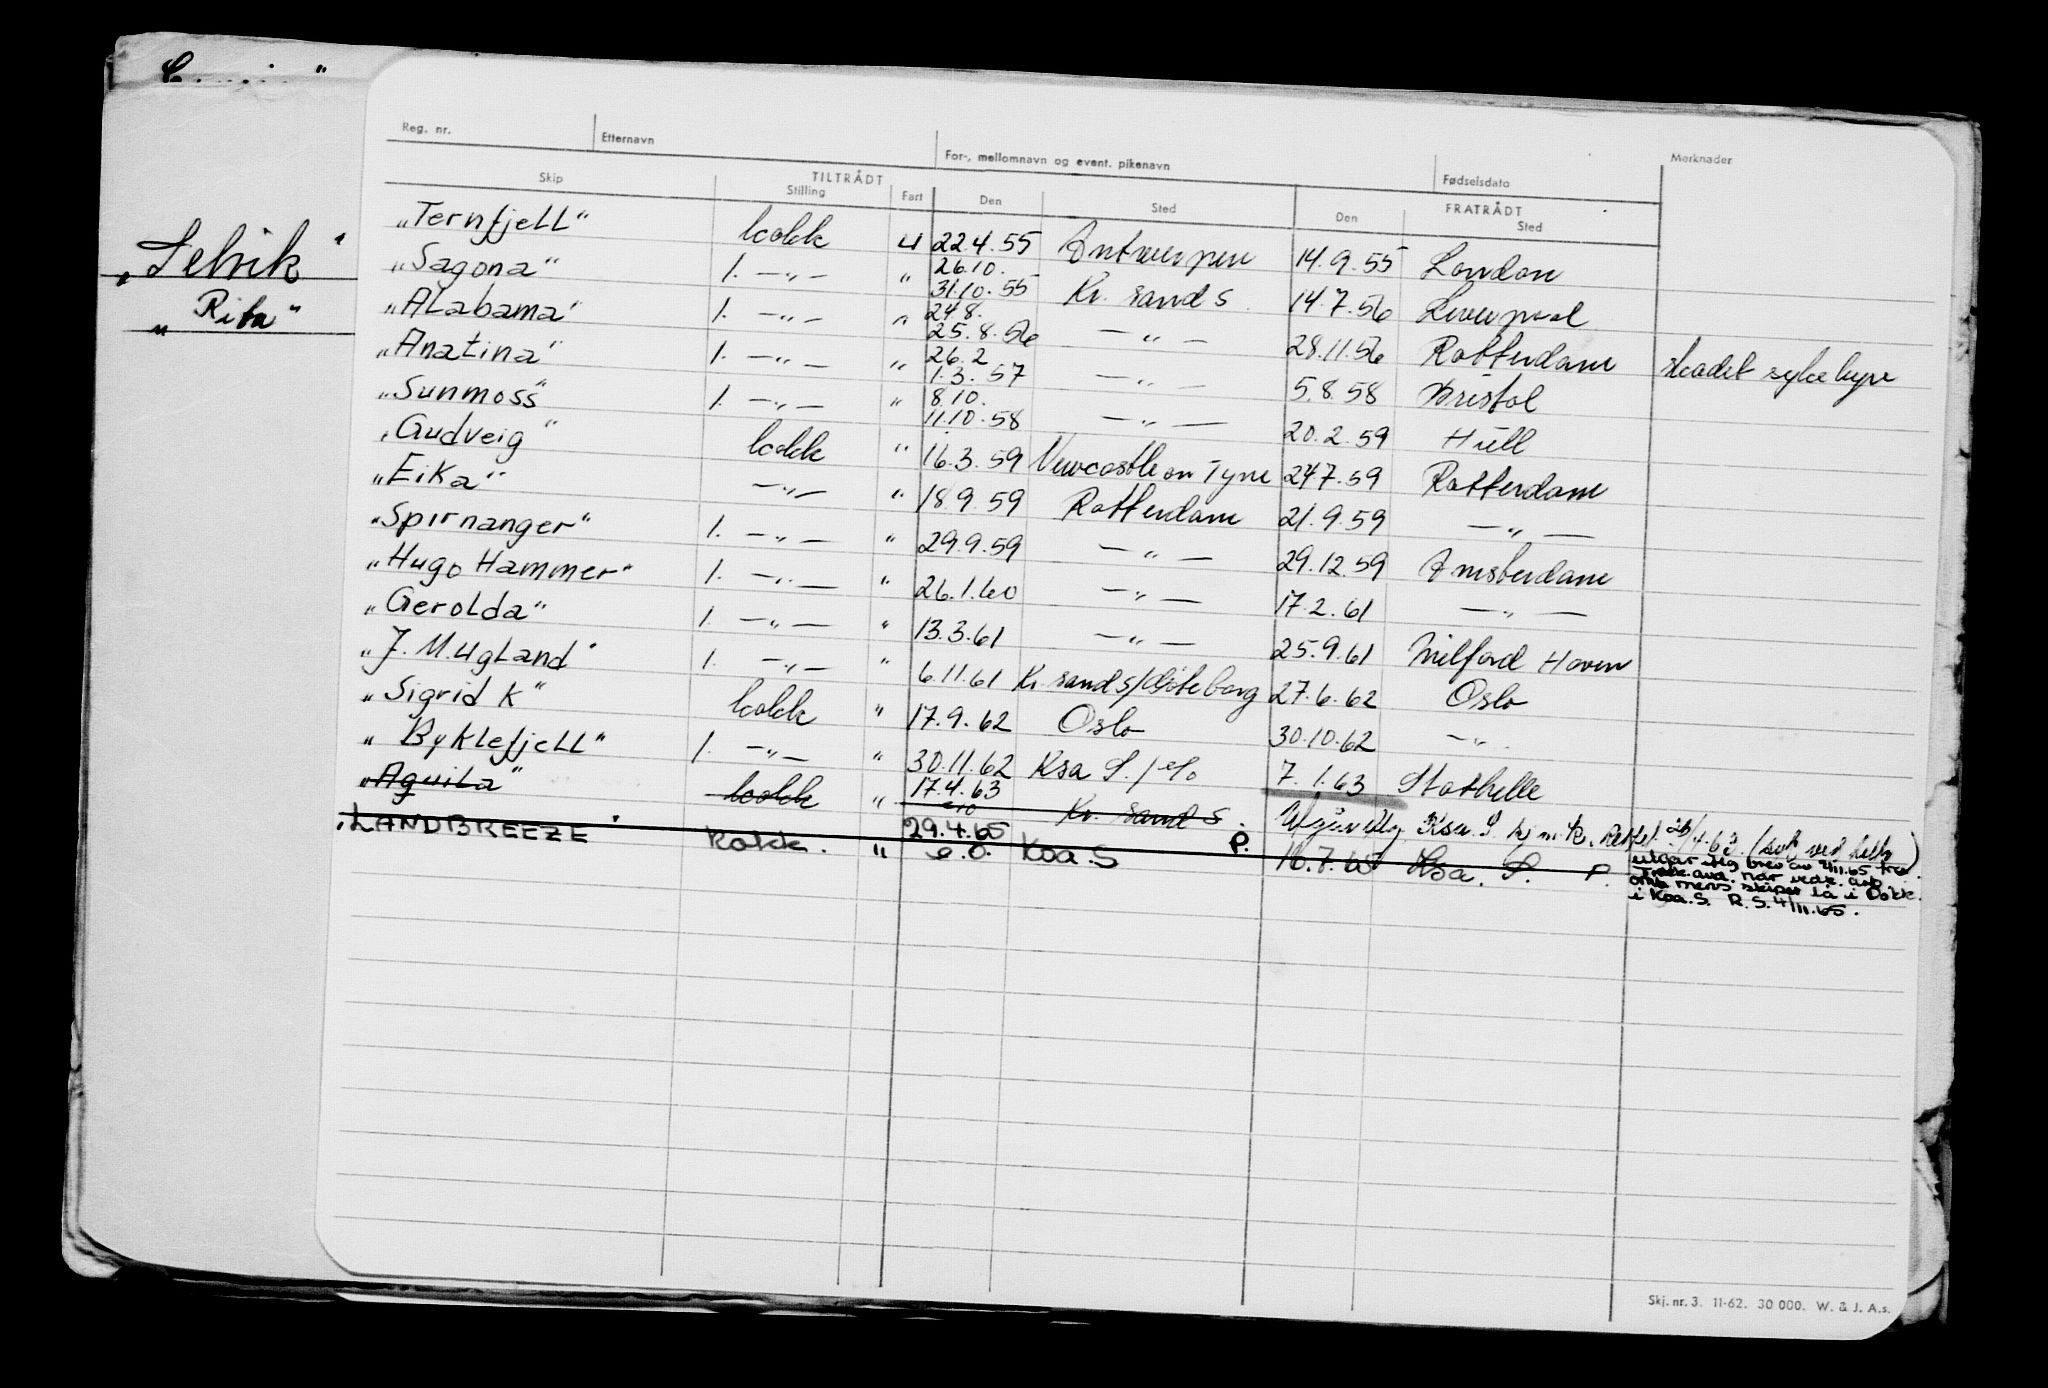 "Selvik"
"Rita"
Reg. nr. Etternavn For-, mellomnavn og event. pikenavn Fødselsdato Merknader
TILTRÅDT FRATRÅDT
Skip Stilling Fart Den Sted Den Sted
"Ternfjell" kokk U 22.4.55 Antwerpen 14.9.55 London
"Sagona" 1. —"— " 26.10. 31.10.55 Kr. sand S 14.7.56 Liverpool
"Alabama" 1. —"— " 24.8. 25.8.56 —"— 28.11.56 Rotterdam skadet
"Anatina" 1. —"— " 26.2 1.3.57 —"— 5.8.58 Bristol
"Sunmoss" 1. —"— " 8.10. 11.10.58 —"— 20.2.59 Hull
"Gudveig" kokk " 16.3.59 Newcastle on Tyne 24.7.59 Rotterdam
"Eika" —"— " 18.9.59 Rotterdam 21.9.59 —"—
"Spirnanger" 1. —"— " 29.9.59 —"— 29.12.59 Amsterdam
"Hugo Hammer" 1. —"— " 26.1.60 —"— 17.2.61 —"—
"Gerolda" 1. —"— " 13.3.61 —"— 25.9.61 Milford Haven
"J. M. Ugland" 1. —"— " 6.11.61 Kr. sand S/Göteborg 27.6.62 Oslo
"Sigrid K" kokk " 17.9.62 Oslo 30.10.62 —"—
"Byklefjell" 1. —"— " 30.11.62 Ksa S. / e/o 7.1.63 Stathelle
"Aguila" kokk " 17.4.63 e/o Kr. sand S. Utgår iflg. Ksa. S.
"LANDBREEZE" Kokk. " 29.4.65 e.o. Ksa. S P. 16.7.65 Ksa. S. P.
utgår iflg brev av 2/11.65
mens skipet lå i Dokk.
i Ksa. S. R. S. 4/11.65.
Skj. nr. 3. 11-62. 30 000. W. & J. A.s.